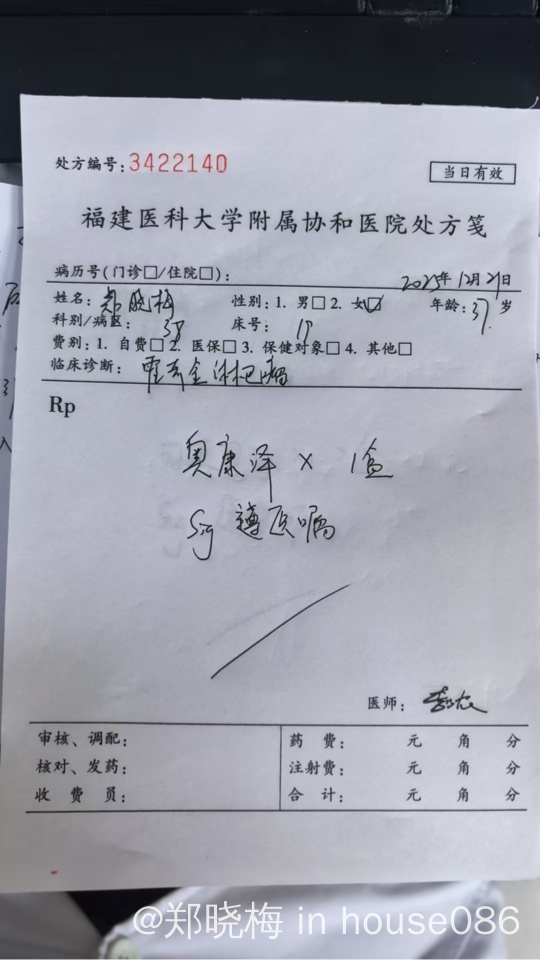 处方编号:3422140
当日有效
福建医科大学附属协和医院处方笺
病历号(门诊□/住院□):
2025年12月29日
姓名: 郑晓梅 性别: 1. 男□ 2. 女☑ 年龄: 37 岁
科别/病区: 床号:
费别: 1. 自费□ 2. 医保□ 3. 保健对象□ 4. 其他□
临床诊断: 霍奇金淋巴瘤
Rp
奥康泽 × 1盒
Sig 遵医嘱
医师:
审核、调配: 药 费: 元 角 分
核对、发药: 注射费: 元 角 分
收 费 员: 合 计: 元 角 分
@郑晓梅 in house086